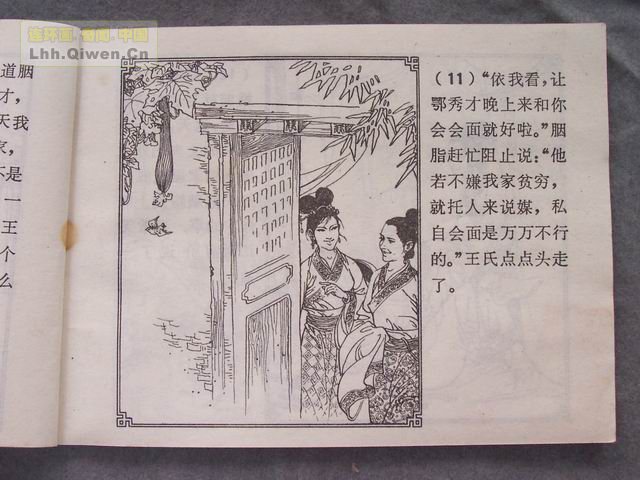 连环画·奇闻·中国
Lhh.Qiwen.Cn
(11)“依我看，让
鄂秀才晚上来和你
会会面就好啦。”胭
脂赶忙阻止说：“他
若不嫌我家贫穷，
就托人来说媒，私
自会面是万万不行
的。”王氏点点头走
了。
道胭
才，
天我
家，
不是
一
王
个
么